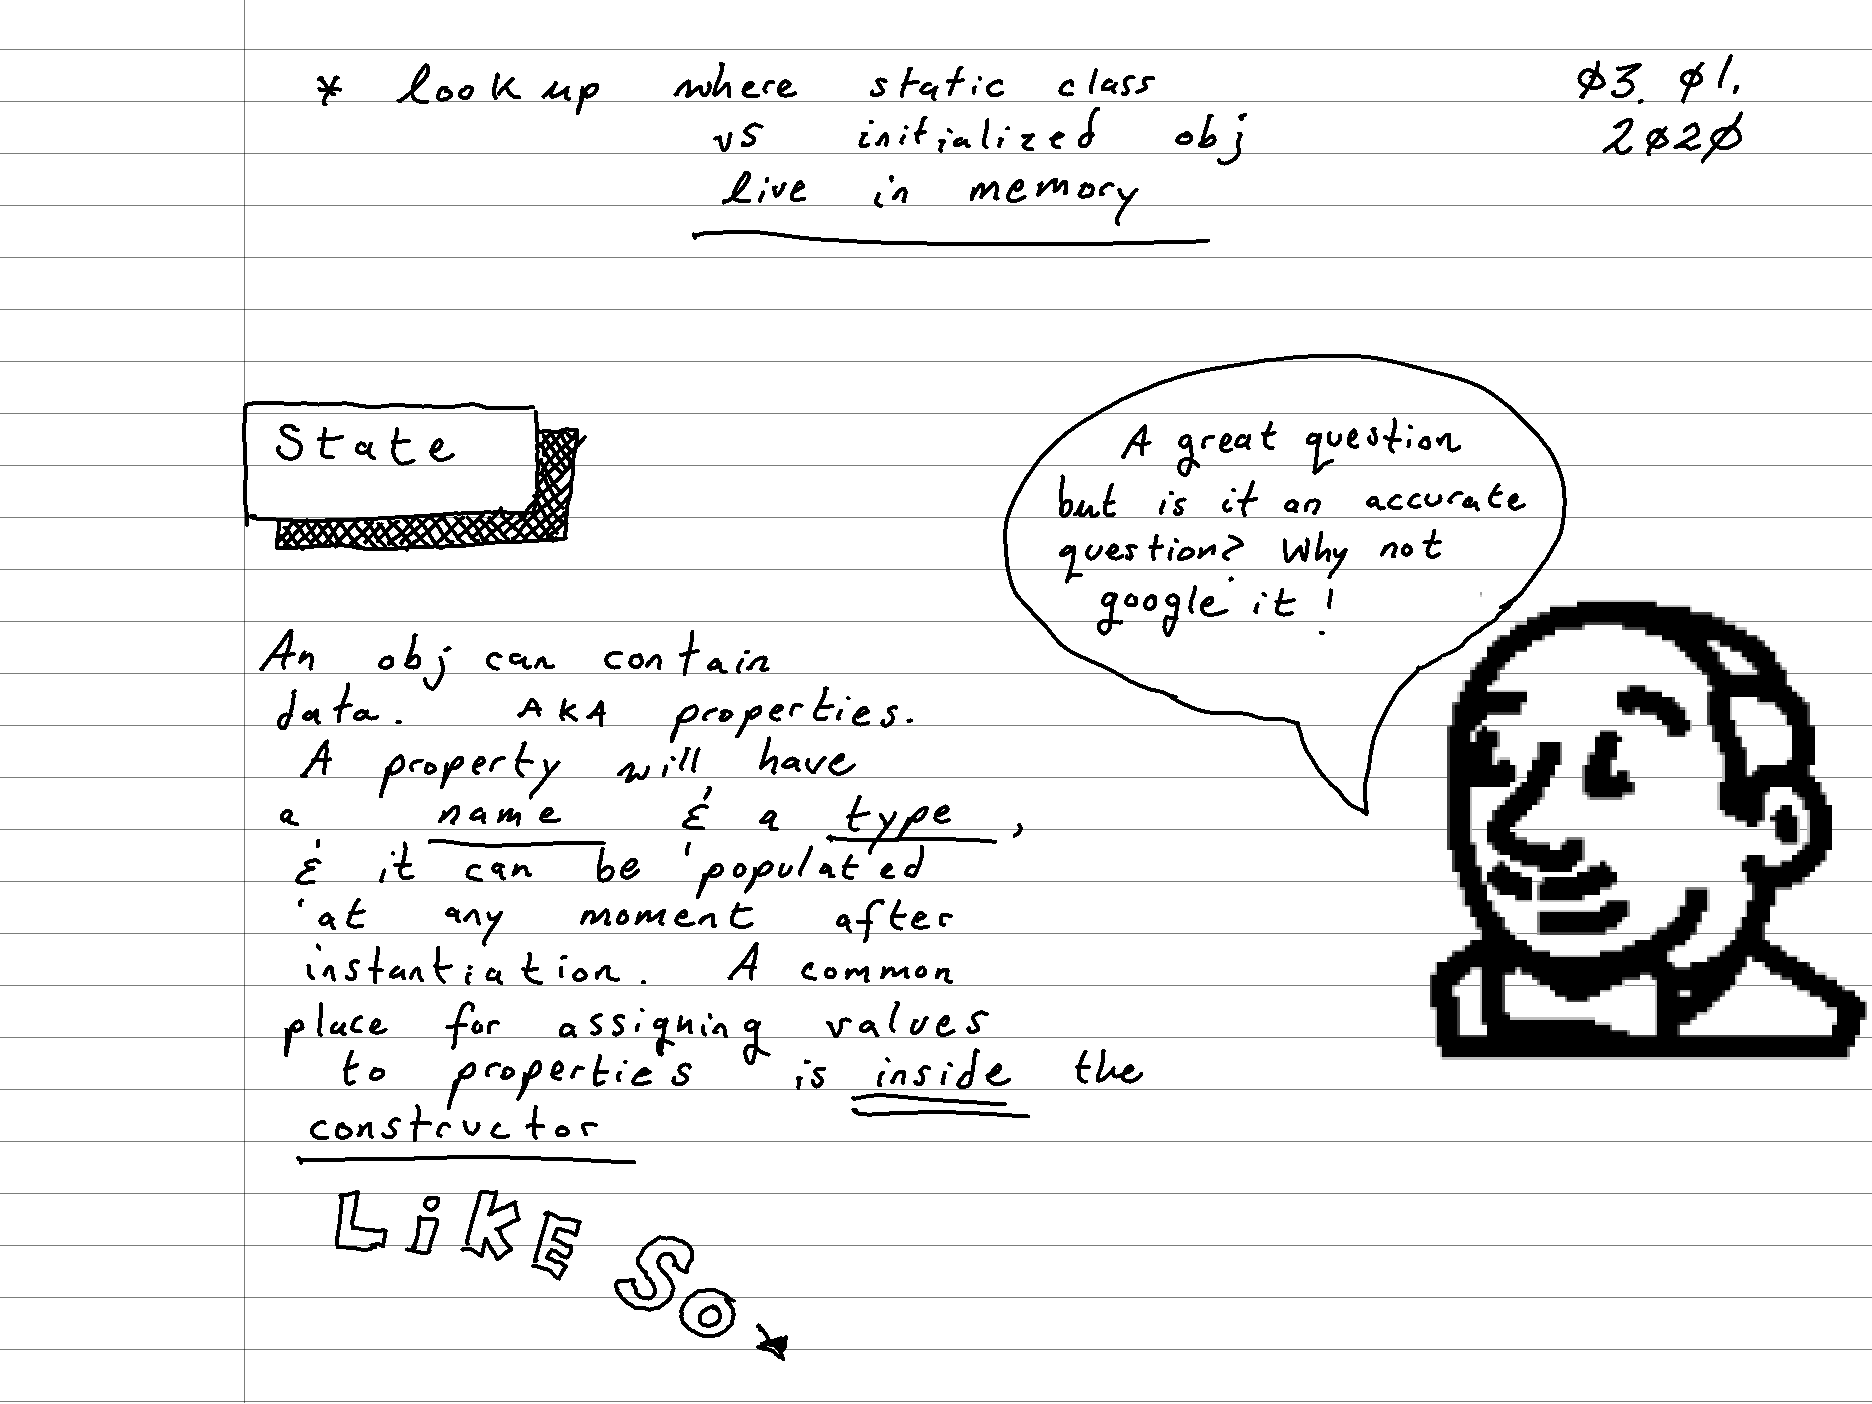 * look up where static class
vs initialized obj
live in memory
03. 01.
2020
State
A great question
but is it an accurate
question? Why not
google it!
An obj can contain
data. AKA properties.
A property will have
a name & a type,
& it can be populated
at any moment after
instantiation. A common
place for assigning values
to properties is inside the
constructor
LiKE SO